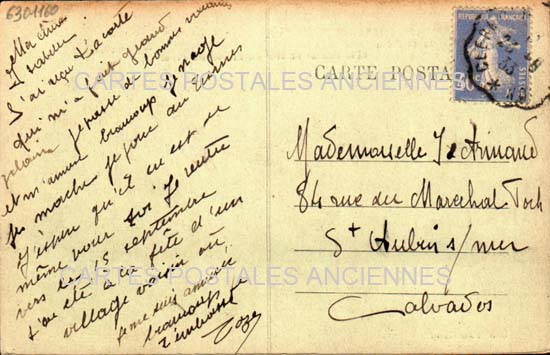 6301160
Ma chère
J'ai reçu ta carte
qui m'a fait grand
plaisir je passe de bonnes vacances
et m'amuse beaucoup je nage
je marche je joue au tennis
J'espère qu'il en est de
même pour toi Je rentre
vers le 15 septembre
J'ai été à la fête d'un
village voisin où
je me suis amusée
beaucoup
t'embrasse
CARTE POSTA
REPUBLIQUE FRANÇAISE
POSTES
Mademoiselle
84 rue du Marechal Foch
St Aubin s/mer
Calvados
CARTES POSTALES ANCIENNES
CARTES POSTALES ANCIENNES